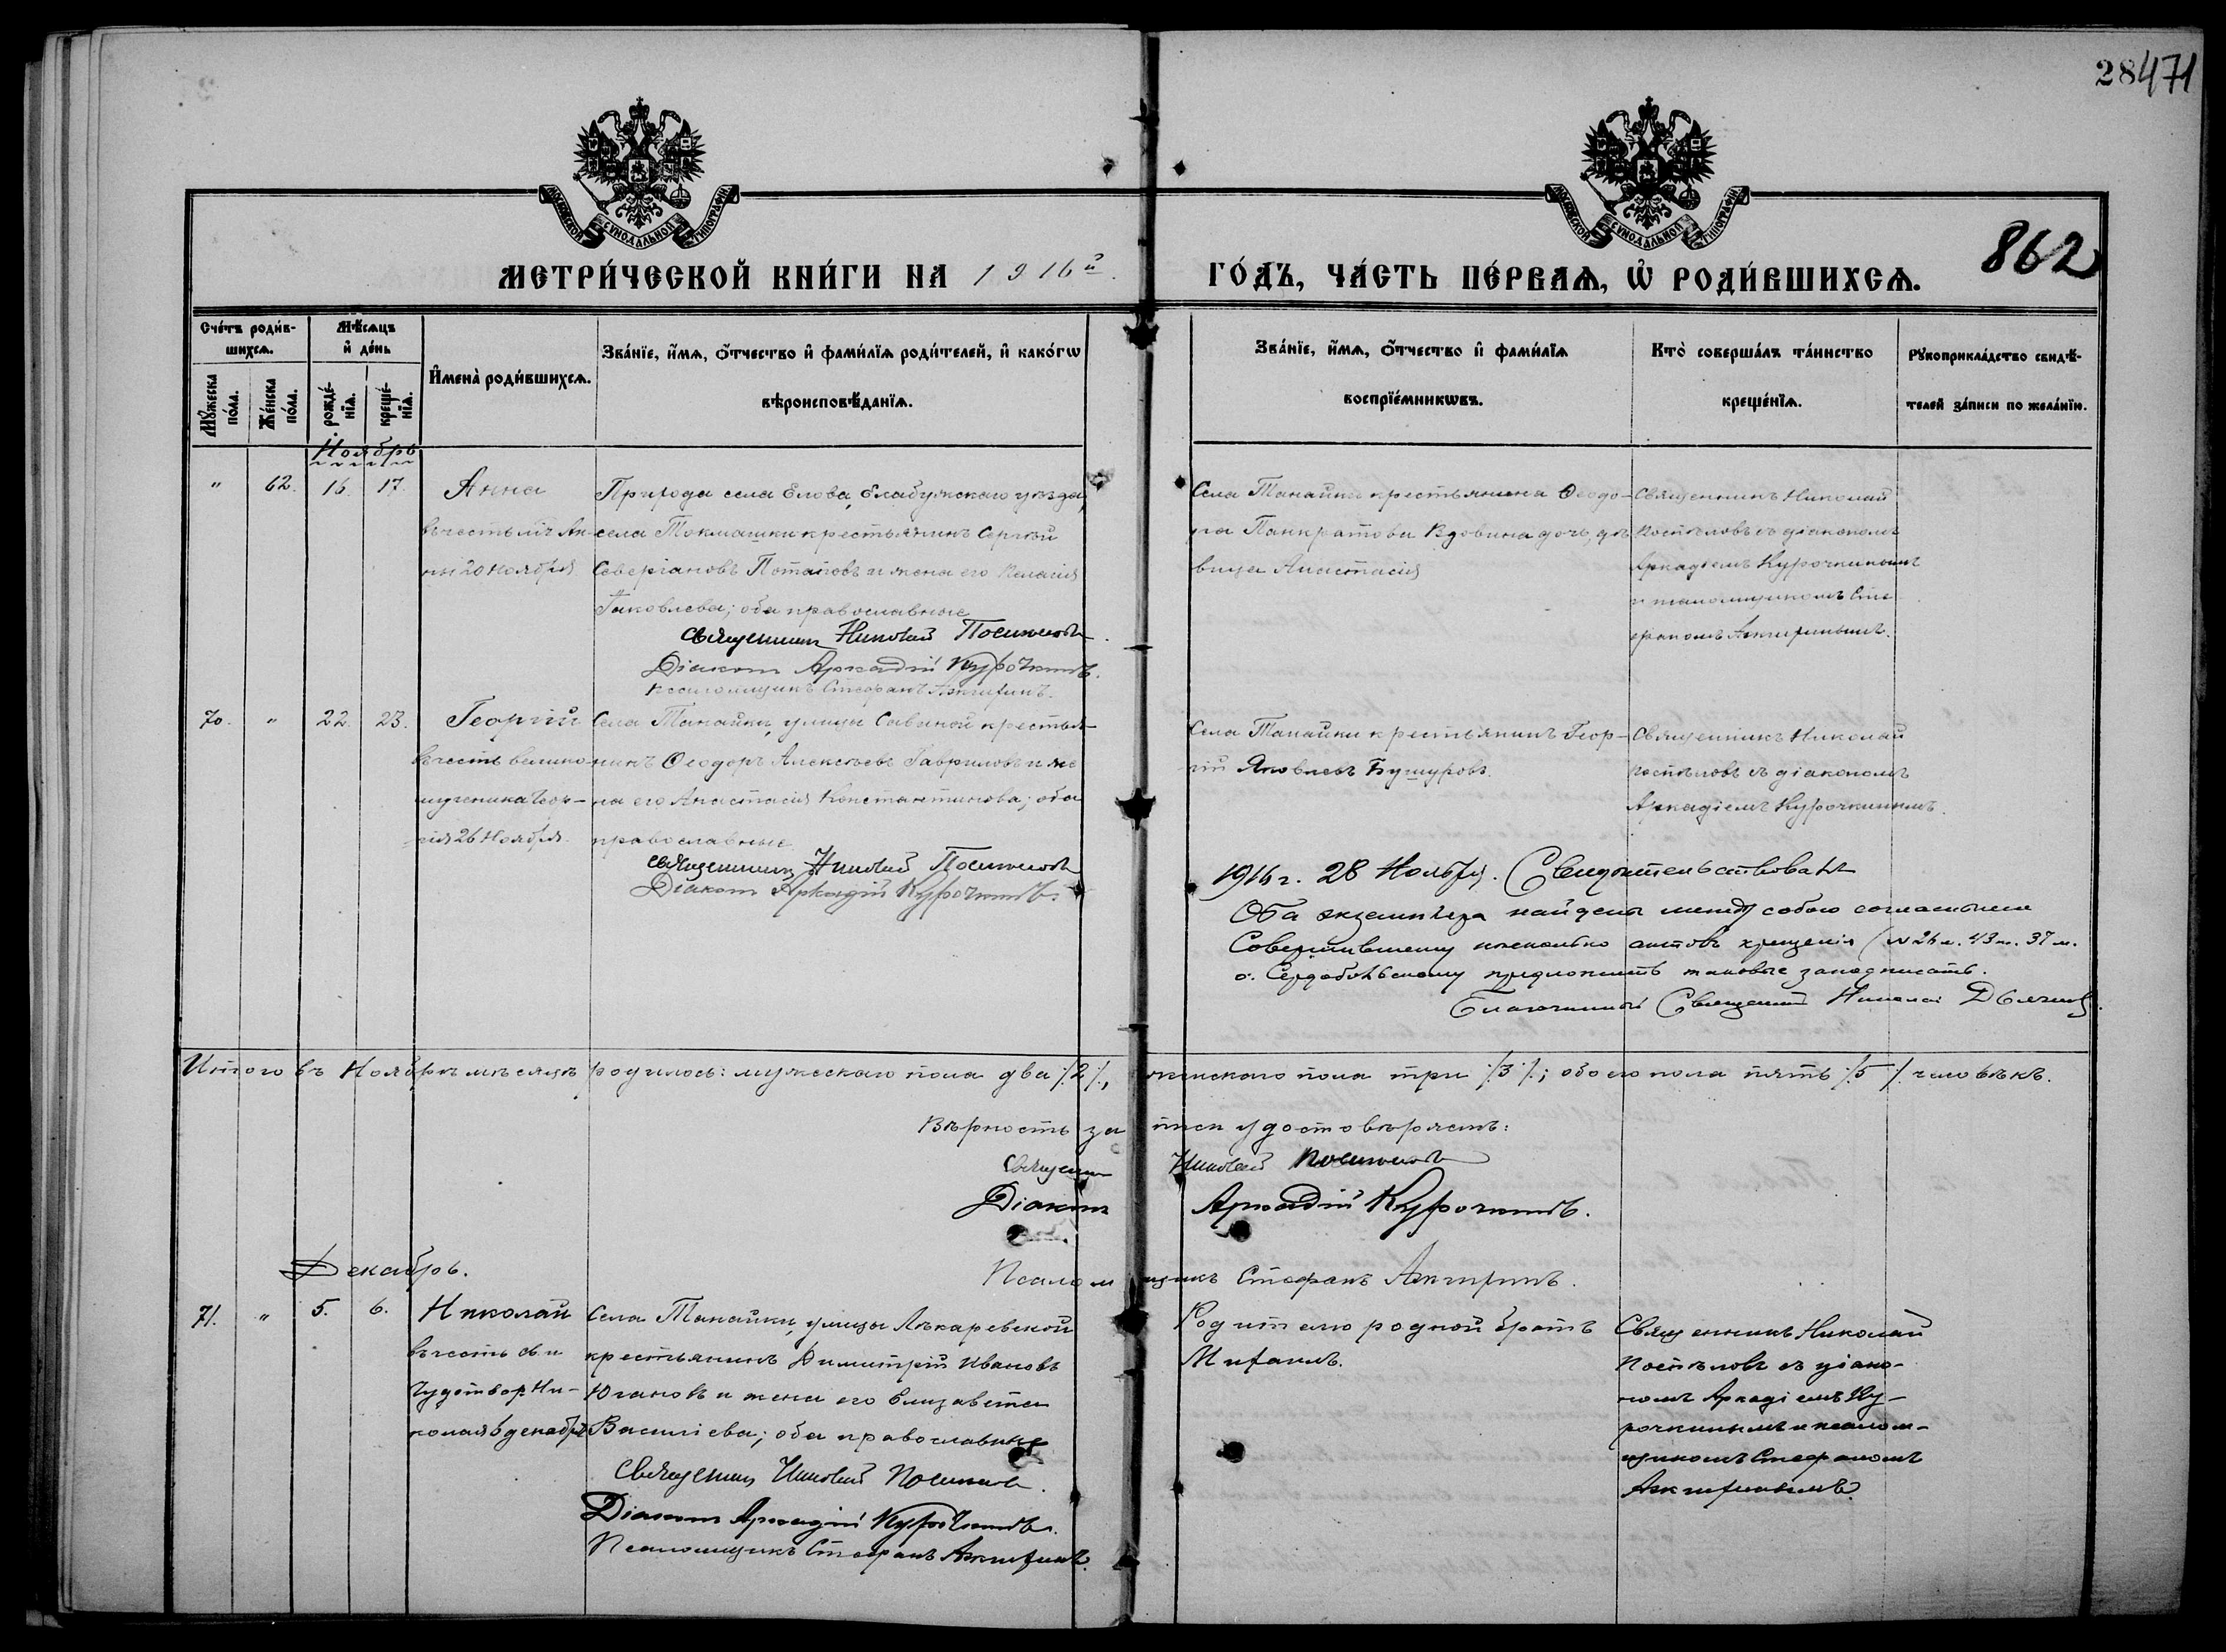 28471
862
МОСКОВСКОЙ СѴНОДАЛЬНОЙ ТИПОГРАФІИ
МОСКОВСКОЙ СѴНОДАЛЬНОЙ ТИПОГРАФІИ
МЕТРИ́ЧЕСКОЙ КНИ́ГИ НА 1916й
ГО́ДЪ, ЧА́СТЬ ПЕ́РВАѦ, Ѡ РОДИ́ВШИХСѦ.
Сче́тъ роди́вшихсѧ.
Мꙋ́жеска по́ла.
Же́нска по́ла.
Мѣ́сѧцъ и҆ де́нь
рожде́нїѧ.
креще́нїѧ.
И҆мена̀ роди́вшихсѧ.
Зва́нїе, и҆́мѧ, ѻ҆́тчество и҆ фами́лїѧ роди́телей, и҆ како́гѡ
вѣроисповѣ́данїѧ.
Зва́нїе, и҆́мѧ, ѻ҆́тчество и҆ фами́лїѧ
воспрїе́мникѡвъ.
Кто̀ соверша́лъ та́инство
креще́нїѧ.
Рꙋкоприкла́дство свидѣ́-
телей за́писи по жела́нїю.
Ноябрь
" 62. 16. 17. Анна
въ честь мц Ан-
ны 20 Ноября
Прихода села Елова, Елабужскаго уѣзда,
села Токмашки крестьянинъ Сергѣй
Северіановъ Потаповъ и жена его Пелагія
Іаковлева; оба православные
Священникъ Николай Поспѣловъ.
Діаконъ Аркадій Курочкинъ.
Псаломщикъ Стефанъ Анхиринъ.
Села Танайки крестьянина Ѳеодо-
ра Панкратова Вдовина дочь, дѣ-
вица Анастасія
Священникъ Николай
Поспѣловъ съ діакономъ
Аркадіемъ Курочкинымъ
и псаломщикомъ Сте-
фаномъ
70. " 22. 23. Георгій
въ честь велико-
мученика Геор-
гія 26 Ноября
Села Танайки, улицы Савиной крестья-
нинъ Ѳеодоръ Алексѣевъ Гавриловъ и же
на его Анастасія Константинова; оба
православные
Священникъ Николай Поспѣловъ
Діаконъ Аркадій Курочкинъ.
Села Танайки крестьянинъ Геор-
гій Яковлевъ Бушуровъ.
Священникъ Николай
Поспѣловъ съ діакономъ
Аркадіемъ Курочкинымъ.
1916 г. 28 Ноября. Свидѣтельствовалъ
Оба экземпляра найдены между собою согласными
Совершившему нѣсколько актовъ крещенія (№ 26 м. 43 ж. 37 м.
о. Сердобольскому предложить таковые заподписать.
Благочинный Священникъ Николай
Итого въ Ноябрѣ мѣсяцѣ родилось: мужескаго пола два /2/, женскаго пола три /3/; обоего пола пять /5/ человѣкъ.
Вѣрность записи удостовѣряемъ:
Священникъ Николай Поспѣловъ
Діаконъ Аркадій Курочкинъ.
Псаломщикъ Стефанъ Анхиринъ.
Декабрь.
71. " 5. 6. Николай
въ честь св. и
Чудотвор. Ни-
колая 6 декабря
Села Танайки, улицы Лѣкаревской
крестьянинъ Димитрій Ивановъ
Югановъ и жена его Елизавета
Василіева; оба православные
Священникъ Николай Поспѣловъ.
Діаконъ Аркадій Курочкинъ.
Псаломщикъ Стефанъ Анхиринъ.
Родителю родной братъ
Михаилъ.
Священникъ Николай
Поспѣловъ съ діако-
номъ Аркадіемъ Ку-
рочкинымъ и псалом-
щикомъ Стефаномъ